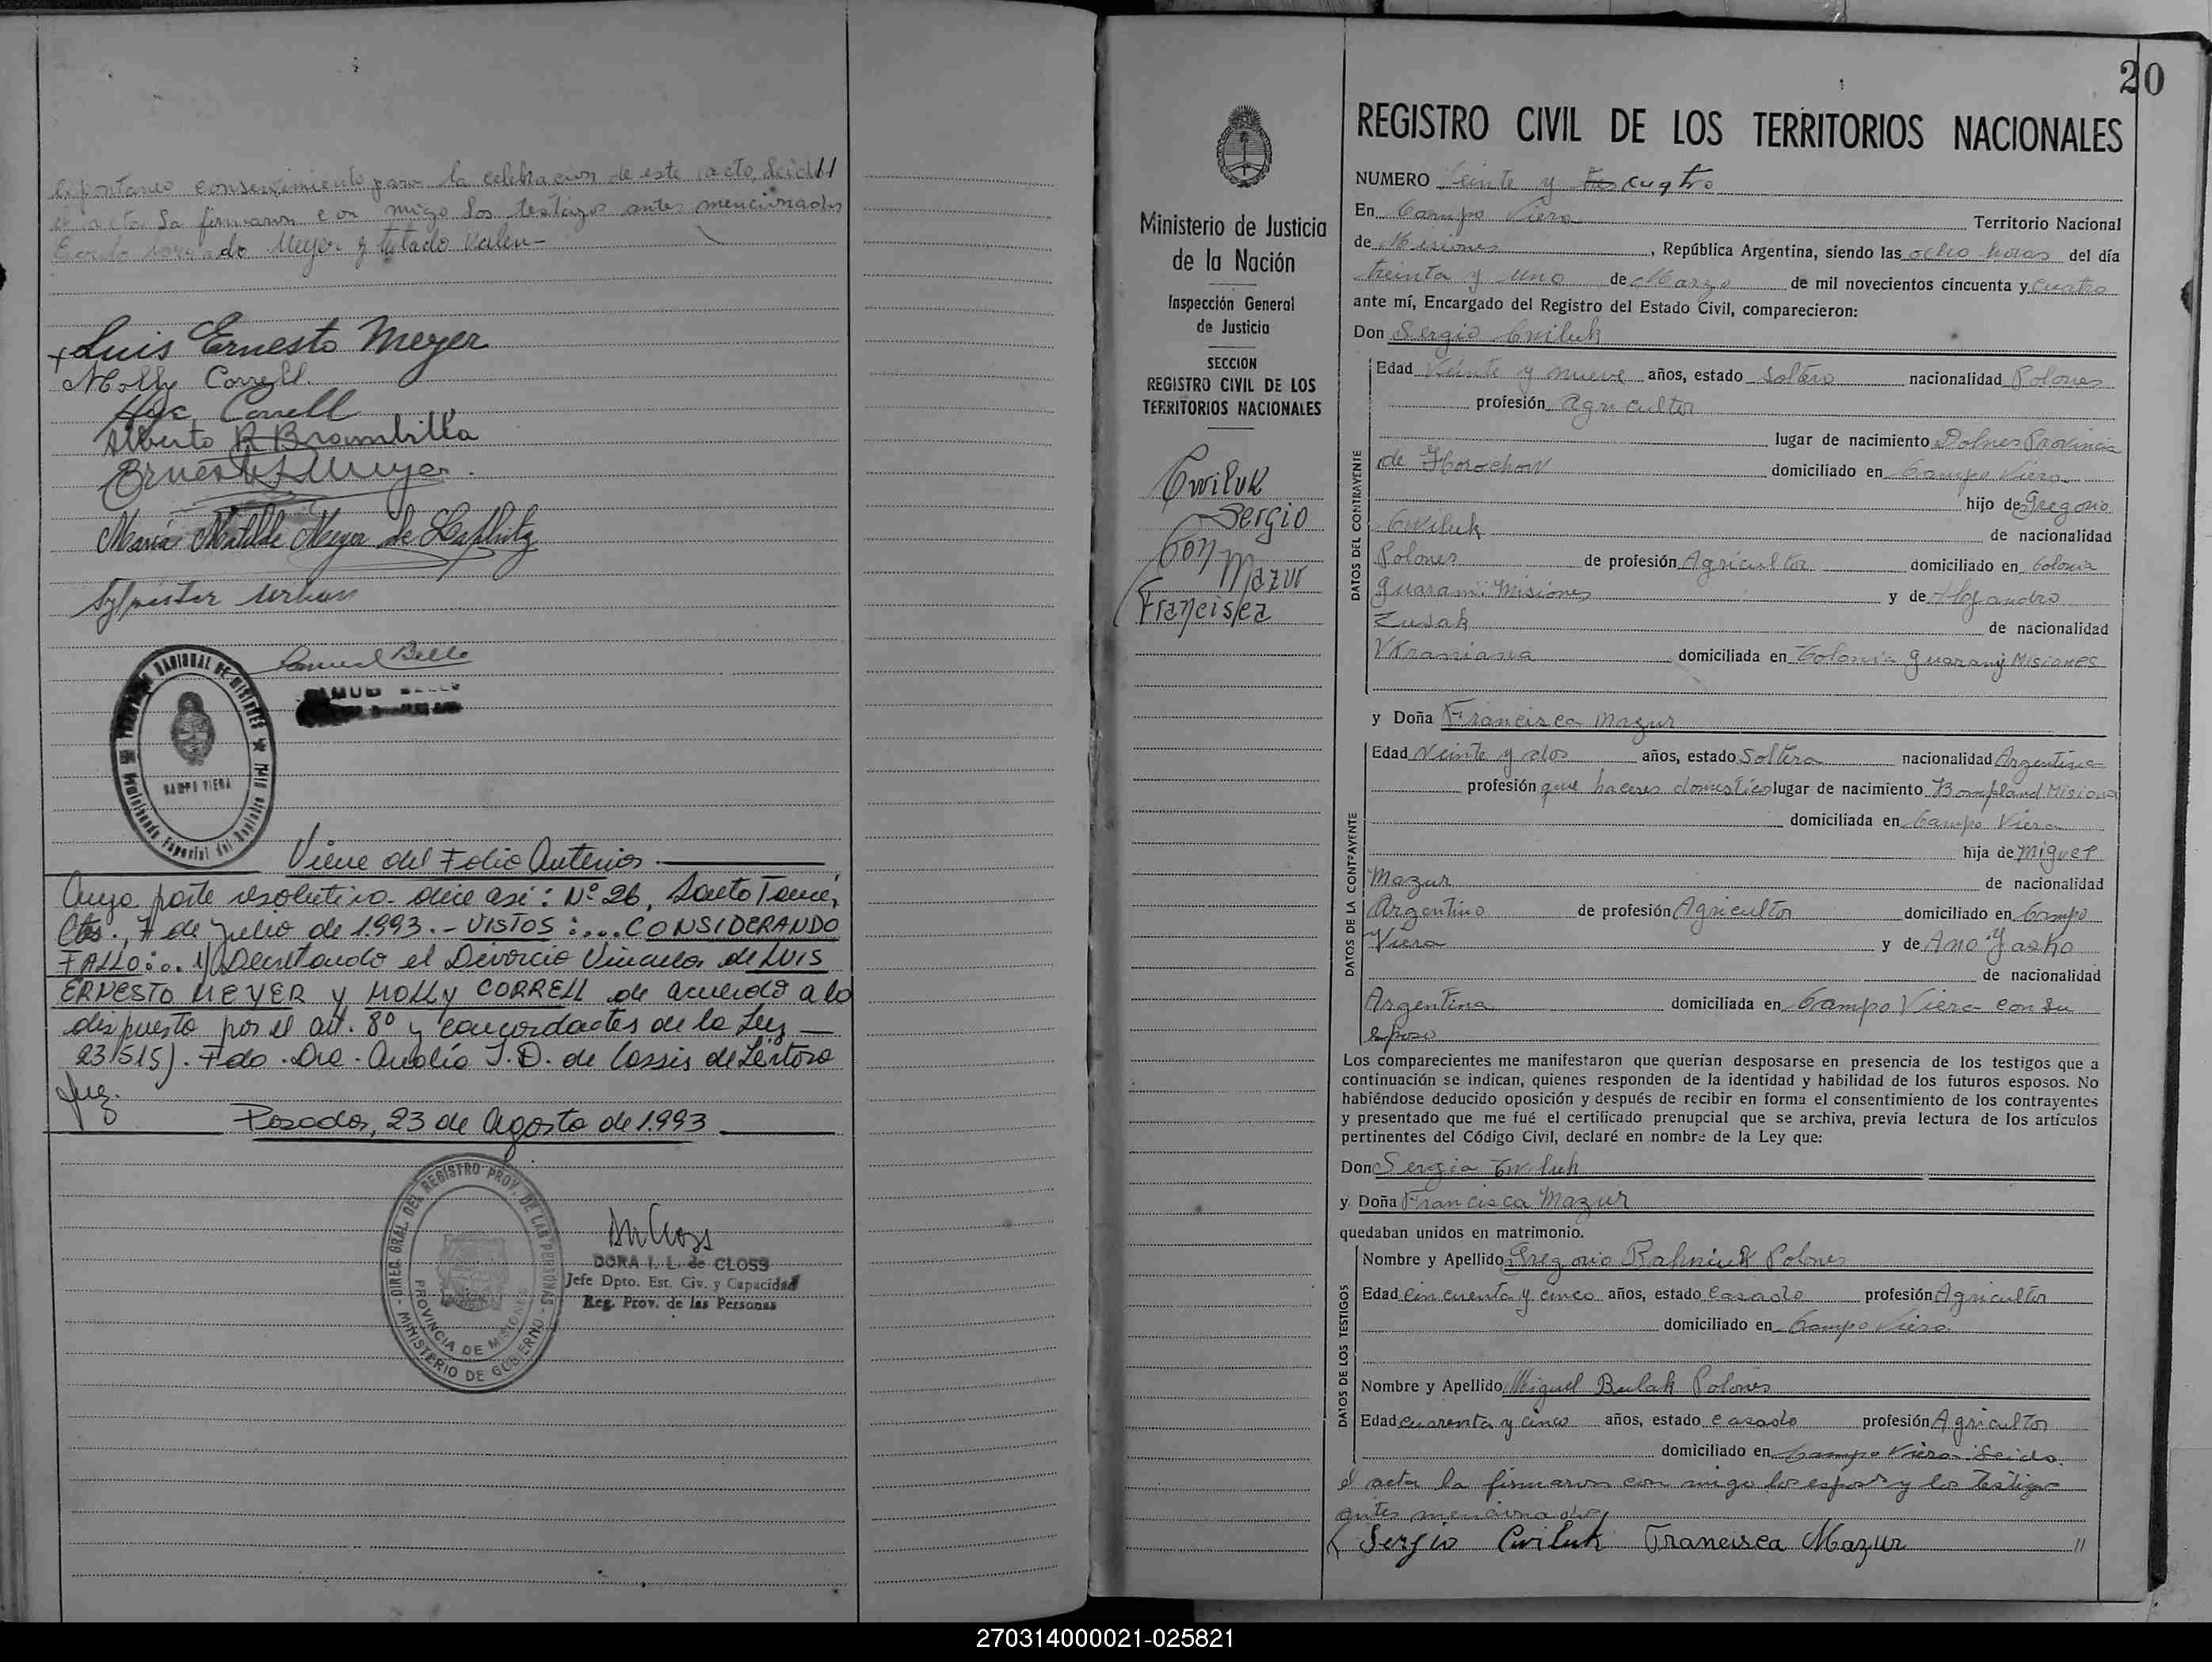 espontaneo consentimiento para la celebracion de este acto, Leida //
el acta la firmaron con migo los testigos antes mencionados
Meyer y tatado Valen-
+ Luis Ernesto Meyer
Molly Correll.
Correll
Alberto R Brambilla
Ernesto Meyer.
Maria Matilde Meyer de
Sylvester Urban
Samuel Bello
CAMPO VIERA
Viene del Folio Anterior.
Cuya parte resolutiva dice asi: Nº 26, Santo Tomé,
Ctes., 7 de Julio de 1.993.- VISTOS:... CONSIDERANDO
FALLO:.. 1) Decretando el Divorcio Vincular de LUIS
ERNESTO MEYER y MOLLY CORRELL de acuerdo a lo
dispuesto por el art. 8º y concordantes de la Ley —
23.515). Fdo. Dra. Analía J. D. de Cossis de Lértora
Juez.
Posadas, 23 de Agosto de 1.993
DIREC. GRAL. DEL REGISTRO PROV. DE LAS PERSONAS - MINISTERIO DE GOBIERNO -
PROVINCIA DE MISIONES
DORA I. L. de CLOSS
Jefe Dpto. Est. Civ. y Capacidad
Reg. Prov. de las Personas
20
Ministerio de Justicia
de la Nación
Inspección General
de Justicia
SECCION
REGISTRO CIVIL DE LOS
TERRITORIOS NACIONALES
Cwiluk
Sergio
Con
Mazur
Francisca
REGISTRO CIVIL DE LOS TERRITORIOS NACIONALES
NUMERO Veinte y tres cuatro
En Campo Viera Territorio Nacional
de Misiones, República Argentina, siendo las ocho horas del día
treinta y uno de Marzo de mil novecientos cincuenta y cuatro
ante mí, Encargado del Registro del Estado Civil, comparecieron:
Don Sergio Cwiluk
DATOS DEL CONTRAYENTE
Edad Veinte y nueve años, estado Soltero nacionalidad Polones
profesión Agricultor
lugar de nacimiento Dolnes Provincia
de Horochow domiciliado en Campo Viera
hijo de Gregorio
Cwiluk de nacionalidad
Polones de profesión Agricultor domiciliado en Colonia
Guarani Misiones y de
Zusak de nacionalidad
Vkraniana domiciliada en Colonia Guarany Misiones
y Doña Francisca Mazur
DATOS DE LA CONTRAYENTE
Edad Veinte y dos años, estado Soltera nacionalidad Argentina
profesión que haceres domestico lugar de nacimiento Bompland Misiones
domiciliada en Campo Viera
hija de Miguel
Mazur de nacionalidad
Argentino de profesión Agricultor domiciliado en Campo
Viera y de Ana Jasko
de nacionalidad
Argentina domiciliada en Campo Viera con su
esposo
Los comparecientes me manifestaron que querían desposarse en presencia de los testigos que a
continuación se indican, quienes responden de la identidad y habilidad de los futuros esposos. No
habiéndose deducido oposición y después de recibir en forma el consentimiento de los contrayentes
y presentado que me fué el certificado prenupcial que se archiva, previa lectura de los artículos
pertinentes del Código Civil, declaré en nombre de la Ley que:
Don Sergio Cwiluk
y Doña Francisca Mazur
quedaban unidos en matrimonio.
DATOS DE LOS TESTIGOS
Nombre y Apellido Gregorio Polones
Edad cincuenta y cinco años, estado Casado profesión Agricultor
domiciliado en Campo Viera
Nombre y Apellido Miguel Bulak Polones
Edad cuarenta y cinco años, estado casado profesión Agricultor
domiciliado en Campo Viera Leida
el acta la firmaron con migo los esposos y los testigos
antes mencionados
Sergio Cwiluk Francisca Mazur //
270314000021-025821